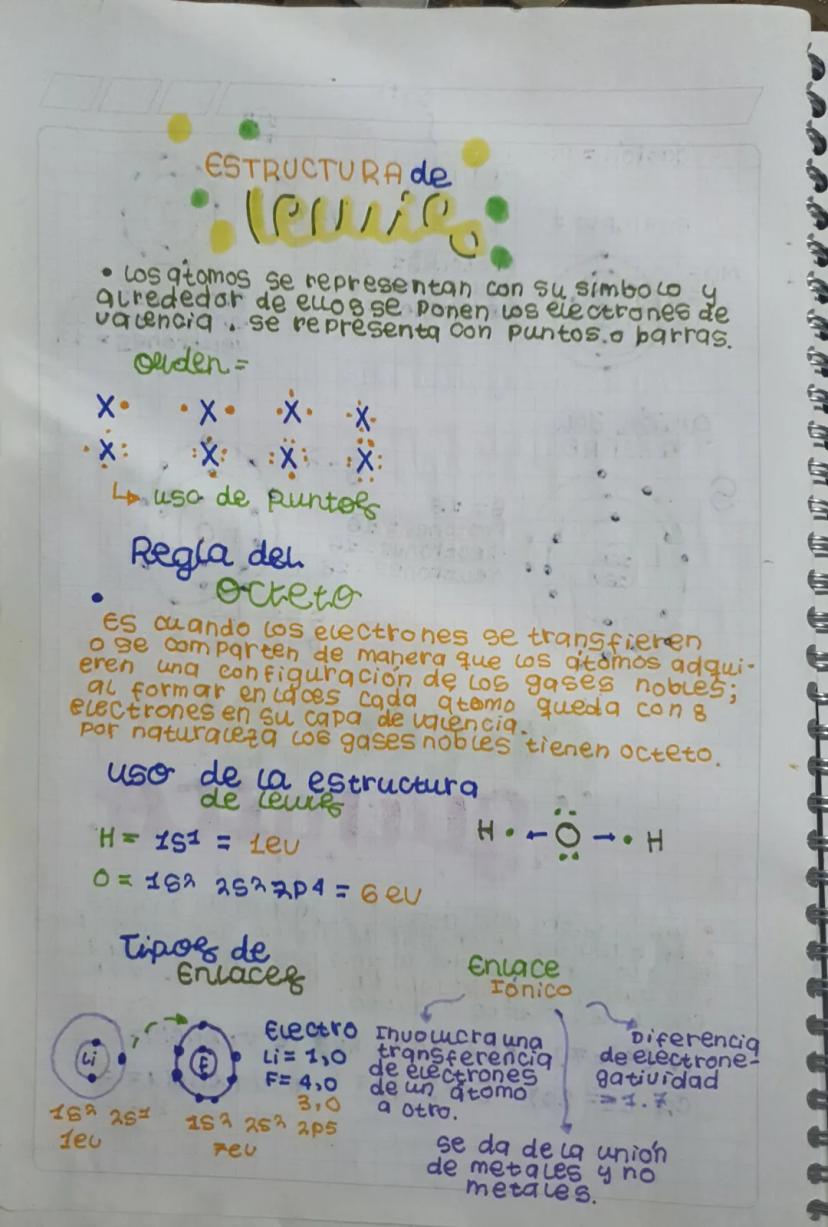 ESTRUCTURA de
lewis
• Los átomos se representan con su símbolo y
alrededor de ellos se ponen los electrones de
valencia. se representa con puntos o barras.
Orden =
X• •X• •X• •X•
•X: :X: :X: :X:
↳ uso de puntos
Regla del
octeto
• Es cuando los electrones se transfieren
o se comparten de manera que los átomos adqui-
eren una configuración de los gases nobles;
al formar enlaces cada átomo queda con 8
electrones en su capa de valencia.
Por naturaleza los gases nobles tienen octeto.
uso de la estructura
de lewis
H = 1s1 = 1ev
H • ← O → • H
O = 1s2 2s2 2p4 = 6 ev
Tipos de
Enlaces
Enlace
Iónico
Li
F
Electro
Li = 1,0
F = 4,0
3,0
1s2 2s1
1ev
1s2 2s2 2p5
7ev
Involucra una
transferencia
de electrones
de un átomo
a otro.
se da de la unión
de metales y no
metales.
Diferencia
de electrone-
gatividad
=>1.7